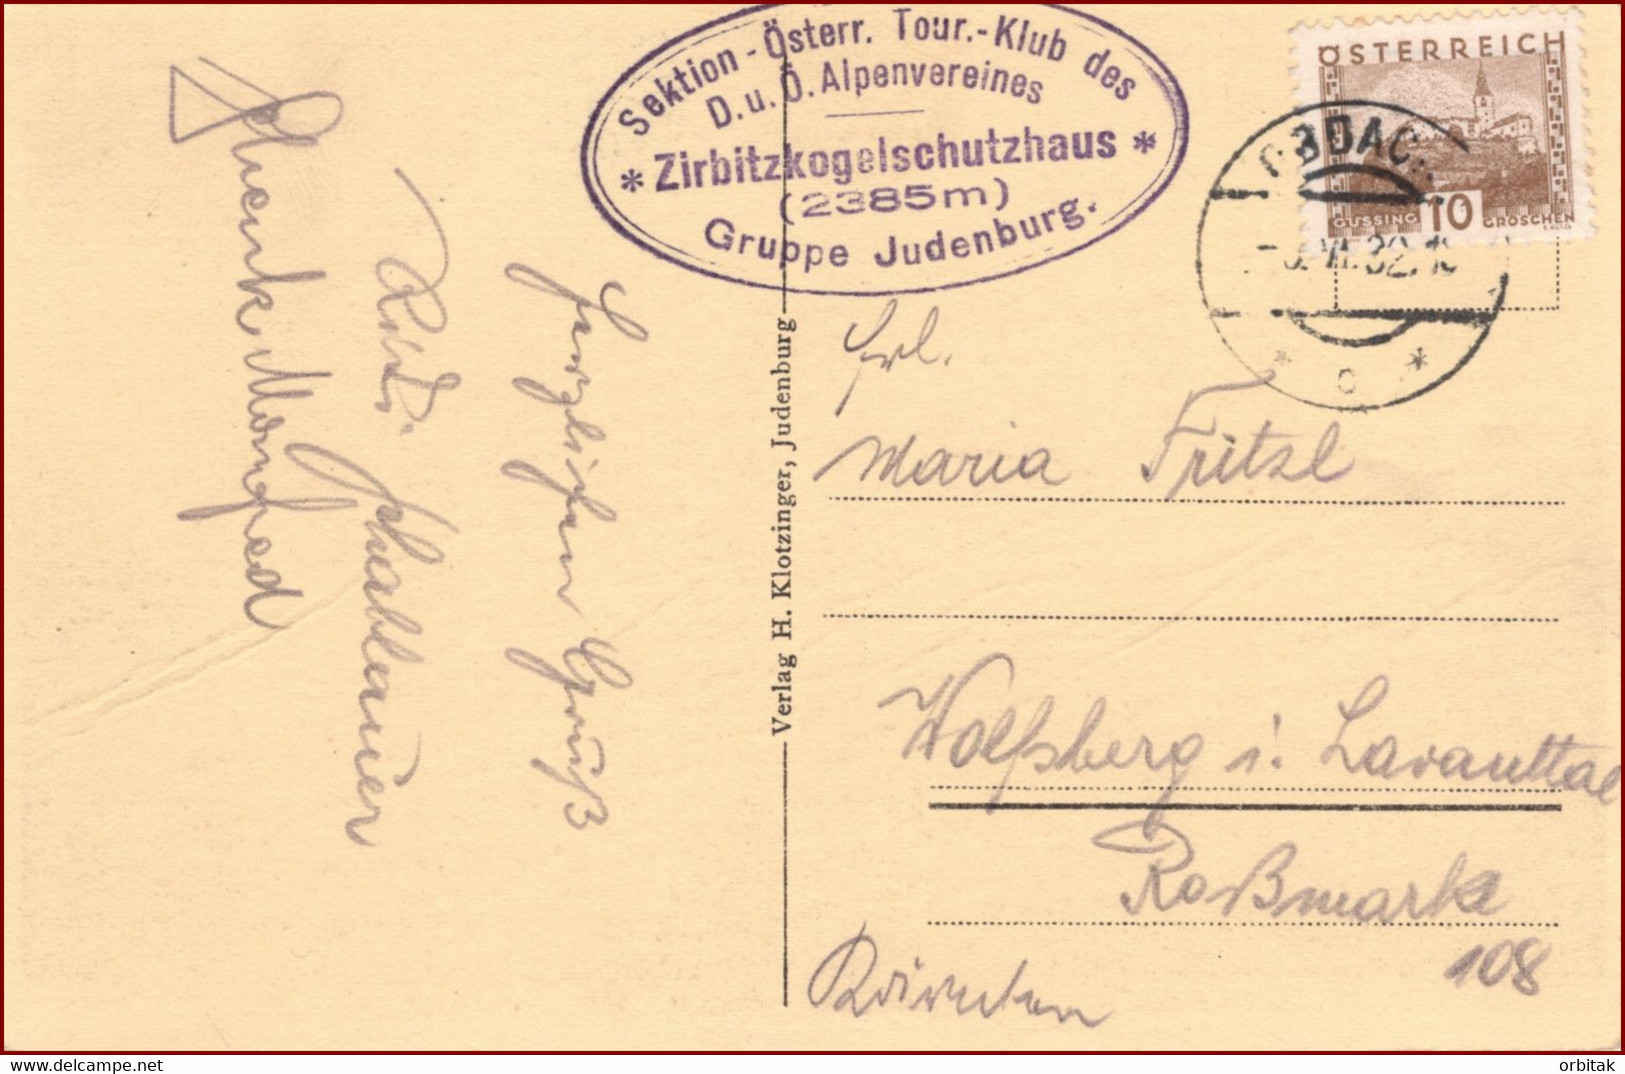 Sektion - Österr. Tour.-Klub des
D. u. Ö. Alpenvereines
* Zirbitzkogelschutzhaus *
(2385m)
Gruppe Judenburg.
ÖSTERREICH
GÜSSING 10 GROSCHEN
OBDACH
VII. 32
* c *
Herzlichen Gruß
Manfred
Verlag H. Klotzinger, Judenburg
Frl.
Maria Fritzl
Wolfsberg i. Lavanttal
Roßmarkt
108
Kärnten
orbitak